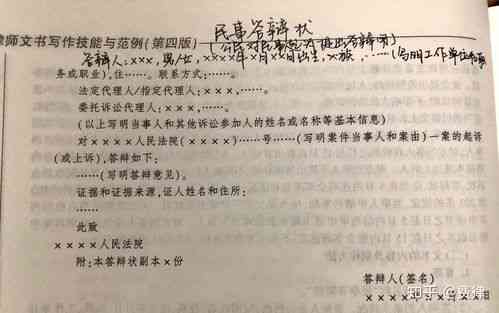 律师文书写作技能与范例(第四版)
民事答辩状
(公民对民事起诉提出答辩用)
答辩人:×××,男/女,××××年×月××日出生,×族,……(写明工作单位和职
务或职业),住……。联系方式:……。
法定代理人/指定代理人:×××,……。
委托诉讼代理人:×××,……。
(以上写明当事人和其他诉讼参加人的姓名或名称等基本信息)
对××××人民法院(××××)……号……(写明案件当事人和案由)一案的起诉
(或上诉),答辩如下:
……(写明答辩意见)。
证据和证据来源,证人姓名和住所:
……
此致
××××人民法院
附:本答辩状副本×份
答辩人(签名)
××××年×月×日
知乎